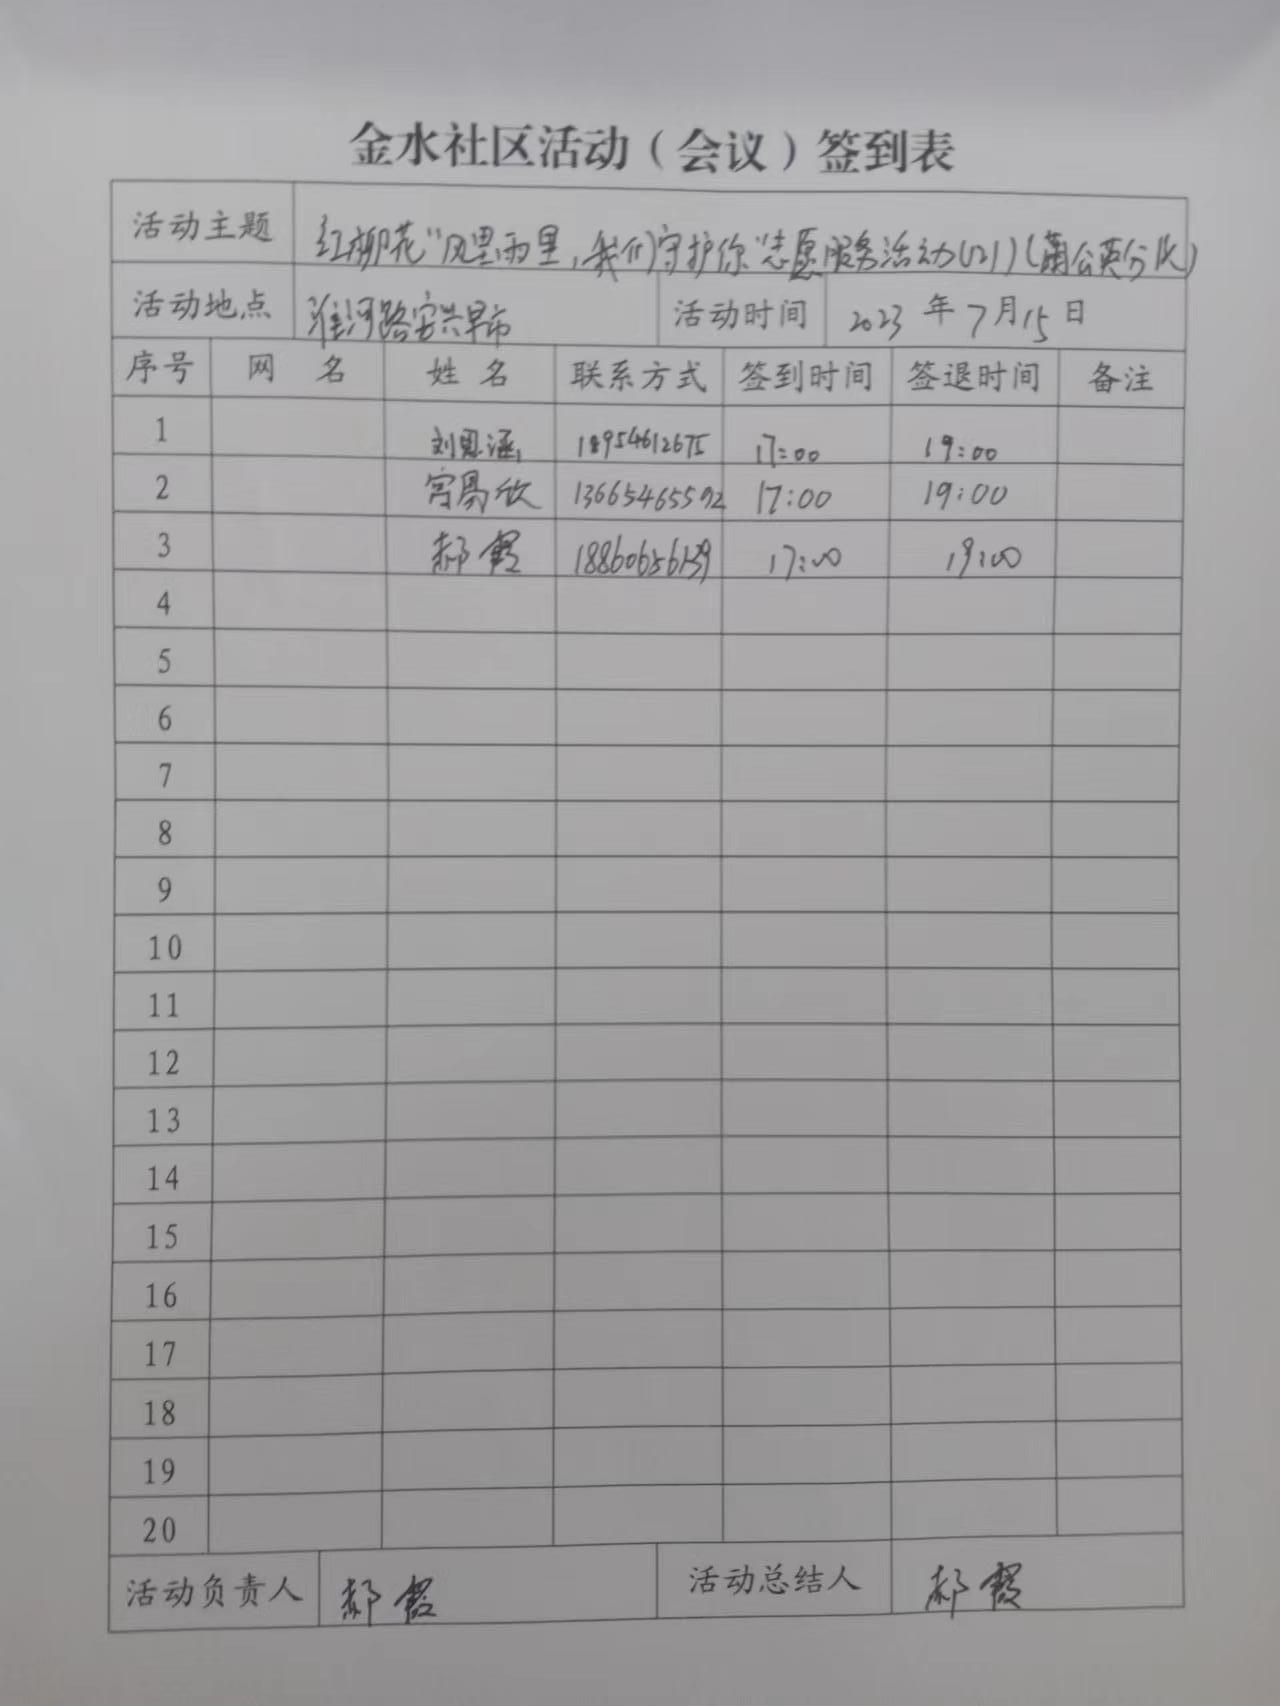 金水社区活动（会议）签到表
活动主题 红柳花"风里雨里,我们守护你"志愿服务活动(121)(蒲公英分队)
活动地点 淮河路安兴早市 活动时间 2023年7月15日
序号 网名 姓名 联系方式 签到时间 签退时间 备注
1 刘恩涵 18954612675 17:00 19:00
2 宫易欣 13665465592 17:00 19:00
3 郝霞 17:00 19:00
4
5
6
7
8
9
10
11
12
13
14
15
16
17
18
19
20
活动负责人 郝霞 活动总结人 郝霞